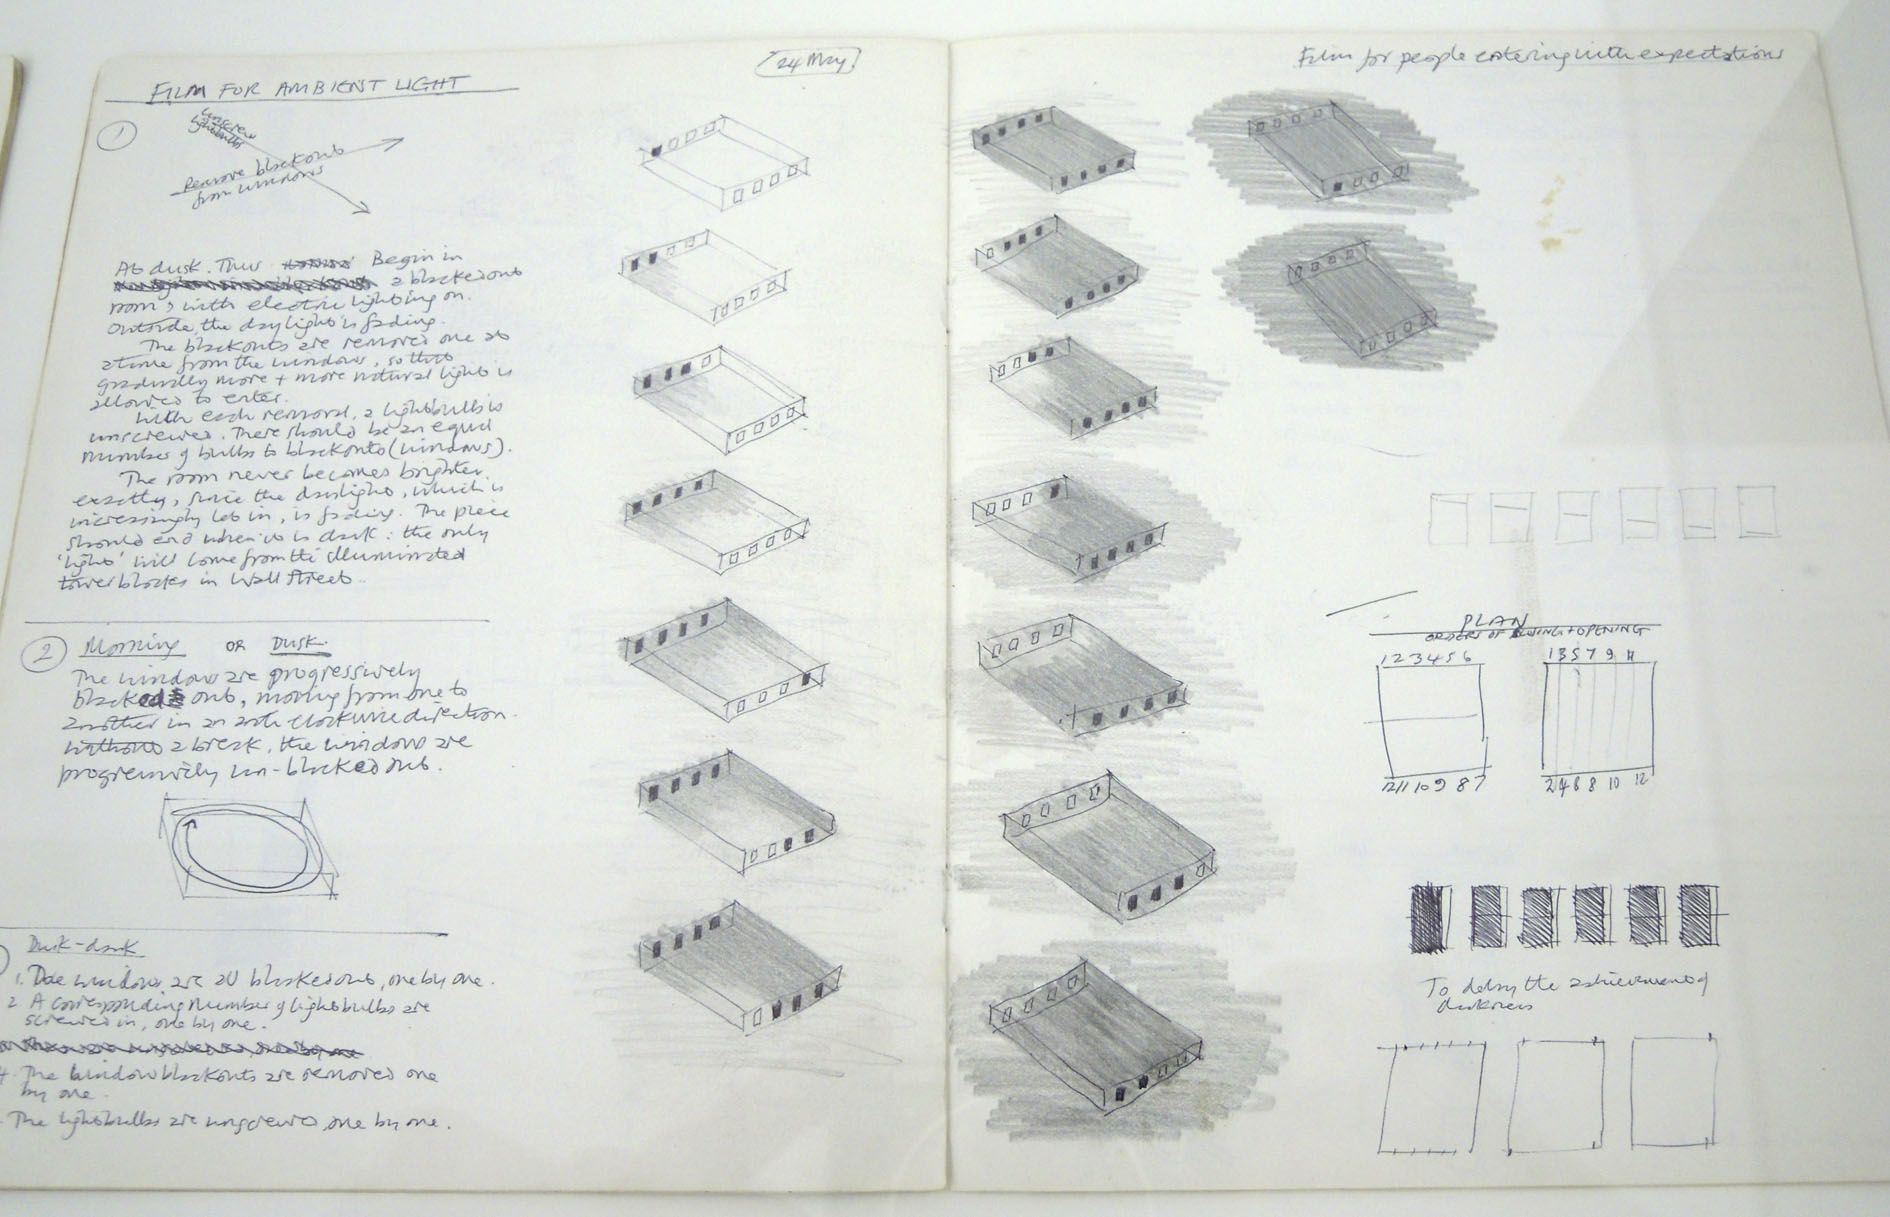 FILM FOR AMBIENT LIGHT
24 May
1
unscrew
lightbulbs
Remove blackouts
from windows
At dusk. Thus Begin in
a blacked out
room, with electric lighting on.
Outside, the daylight is fading.
The blackouts are removed one at
a time from the windows, so that
gradually more + more natural light is
allowed to enter.
With each removal, a lightbulb is
unscrewed. There should be an equal
number of bulbs to blackouts (windows).
The room never becomes brighter
exactly, since the daylight, which is
increasingly let in, is fading. The piece
should end when it is dark: the only
'light' will come from the illuminated
tower blocks in Wall Street.
2 Morning OR Dusk
The windows are progressively
blacked out, moving from one to
another in an anti-clockwise direction.
Without a break, the windows are
progressively un-blacked out.
Dusk-dark
1. The windows are all blacked out, one by one.
2 A corresponding number of lightbulbs are
screwed in, one by one.
4. The window blackouts are removed one
by one.
The lightbulbs are unscrewed, one by one.
Film for people entering with expectations
PLAN
ORDERS OF CLOSING + OPENING
1 2 3 4 5 6
12 11 10 9 8 7
1 3 5 7 9 11
2 4 6 8 10 12
To delay the achievement of
darkness